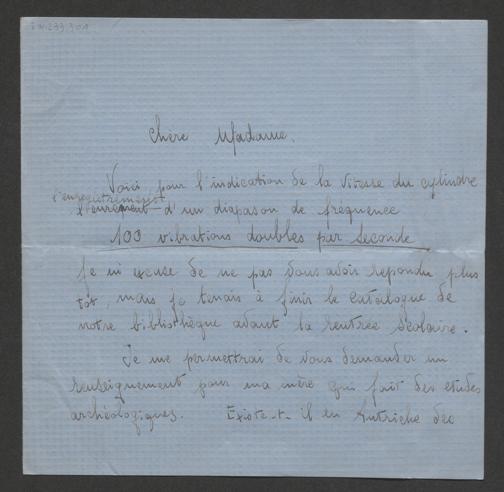 Chère Madame.
Voici, pour l'indication de la vitesse du cylindre
l'enregistrement
d'un diapason de frequence
100 vibrations doubles par seconde
Je m'excuse de ne pas vous avoir repondu plus
tot, mais je tenais à finir le catalogue de
notre bibliothèque avant la rentree scolaire.
Je me permettrai de vous demander un
renseignement pour ma mère qui fait des etudes
archéologiques. Existe-t-il en Autriche des